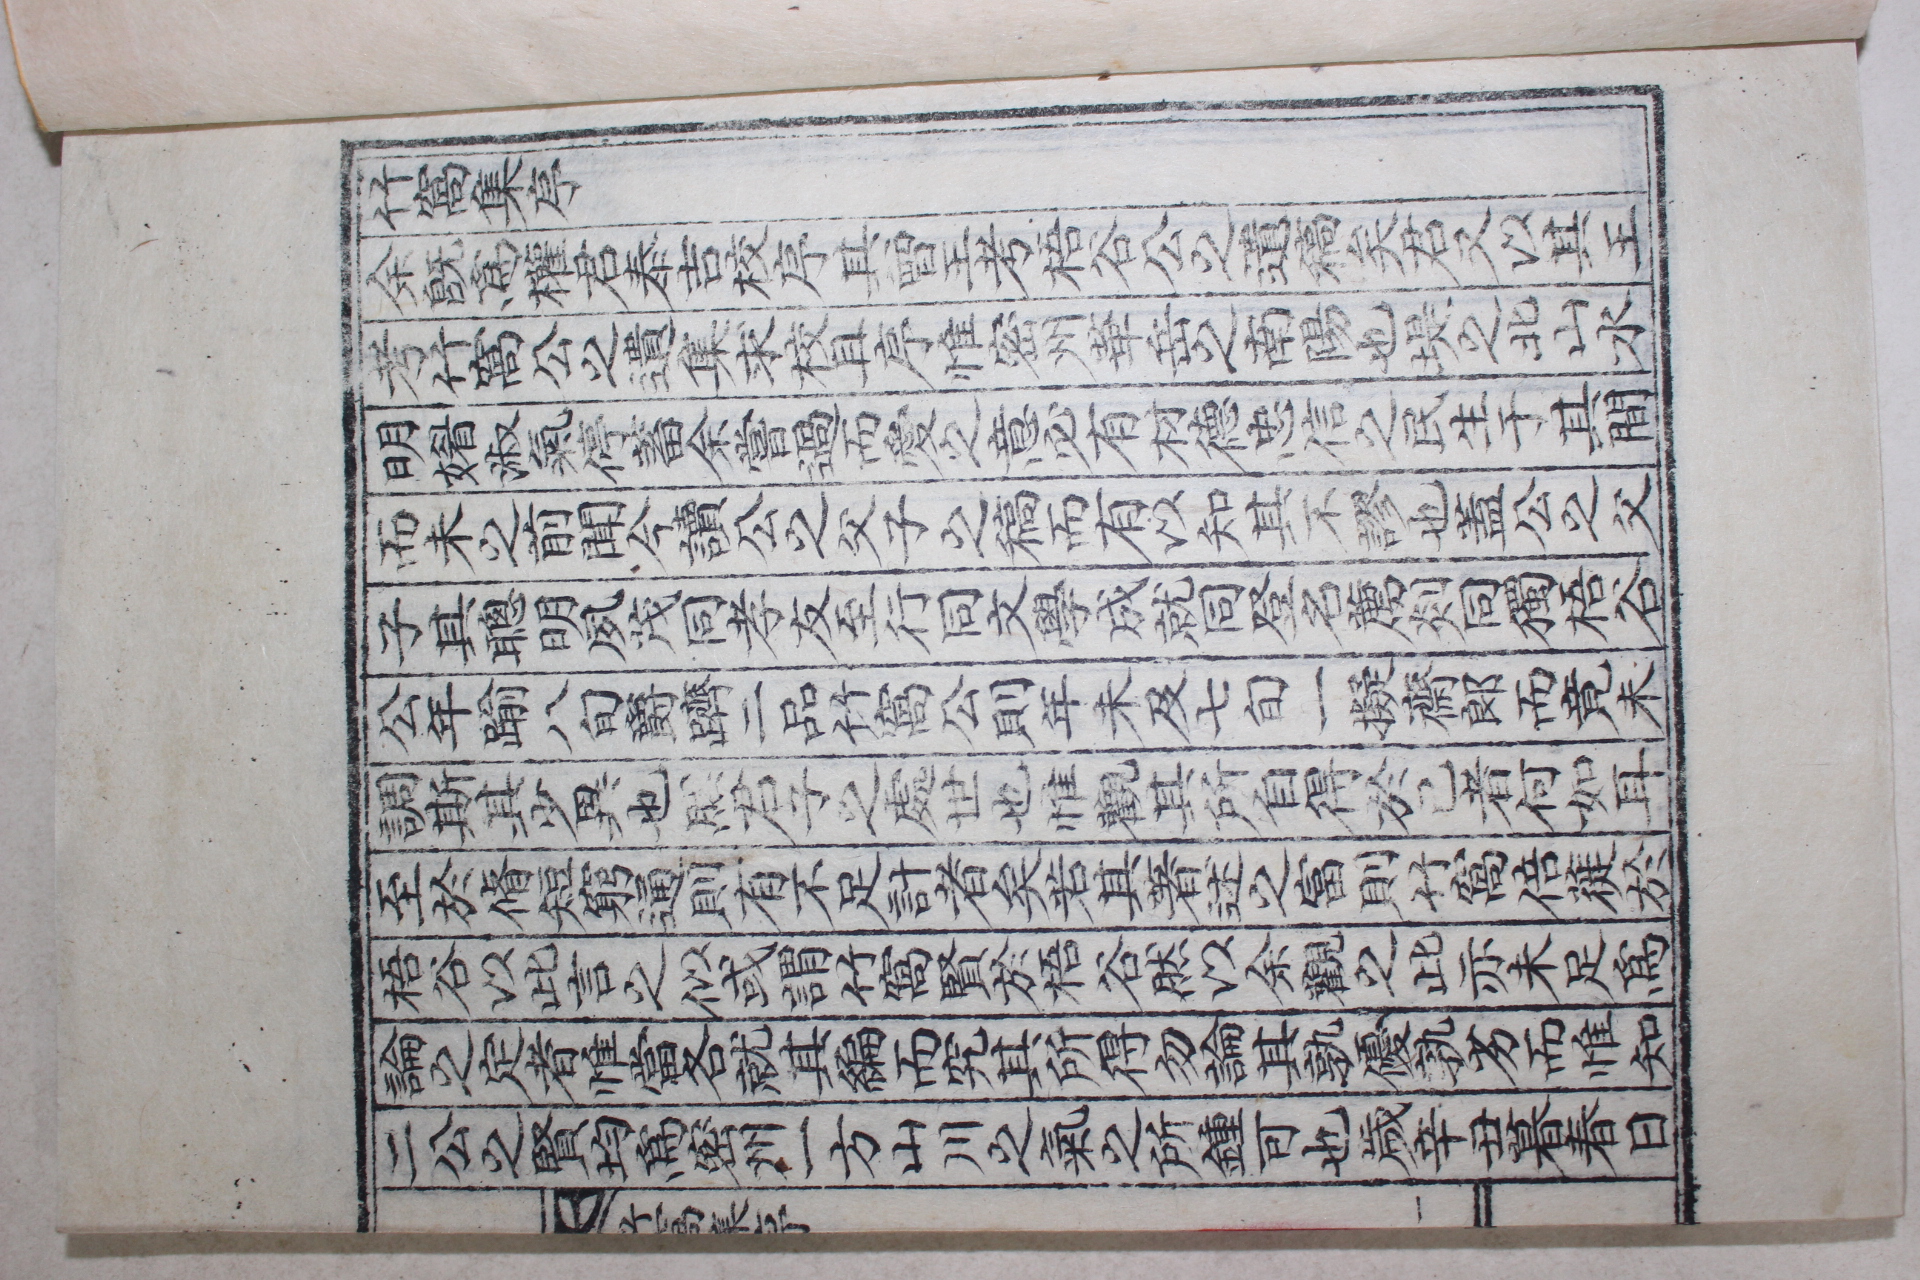 竹窩集序
余旣爲權君奉吉校序其曾王考梧谷公之遺稿矣君又以其王
考竹窩公之遺集求校且序惟密州華岳之南陽也堤之北山水
明媚淑氣停蓄余嘗過而愛之意必有材德忠信之民生于其間
而未之前聞今讀公之父子之稿而有以知其不謬也蓋公之父
子其聰明夙茂同孝友至行同文學成就同登名薦剡同獨梧谷
公年踰八旬爵躋二品竹窩公則年未及七旬一擬齋郎而竟未
調斯其少異也然君子之處世也惟觀其所自得於己者何如耳
至於脩短窮通則有不足計者矣若其著述之富則竹窩倍蓰於
梧谷以此言之似或謂竹窩賢於梧谷然以余觀之此亦未足爲
論之定者惟當各就其編而究其所得勿論其孰優孰劣而惟知
二公之賢均爲密州一方山川之氣之所鍾可也歲辛丑暮春日
竹窩集序
一